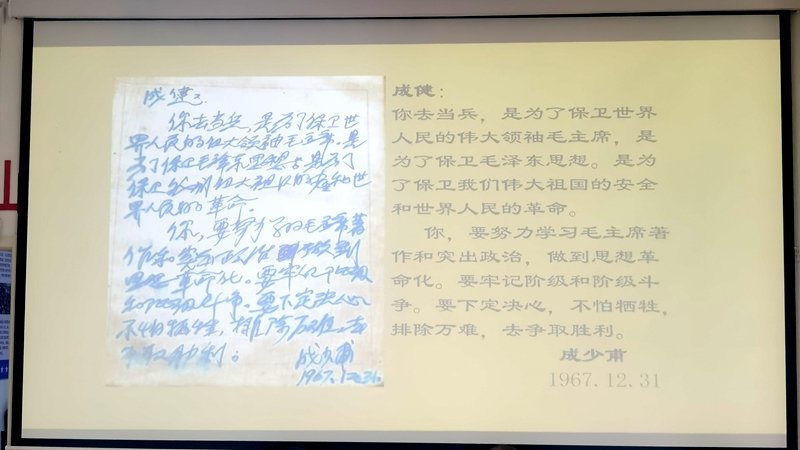 成健：
你去当兵，是为了保卫世
界人民的伟大领袖毛主席，是
为了保卫毛泽东思想。是
为了保卫我们伟大祖国的安全和世
界人民的革命。
你，要努力学习毛主席著
作和突出政治，做到
思想革命化。要牢记阶级
和阶级斗争。要下定决心，
不怕牺牲，排除万难，去
争取胜利。
成少甫
1967.12.31
成健：
你去当兵，是为了保卫世界
人民的伟大领袖毛主席，是
为了保卫毛泽东思想。是为
了保卫我们伟大祖国的安全
和世界人民的革命。
你，要努力学习毛主席著
作和突出政治，做到思想革
命化。要牢记阶级和阶级斗
争。要下定决心，不怕牺牲，
排除万难，去争取胜利。
成少甫
1967.12.31